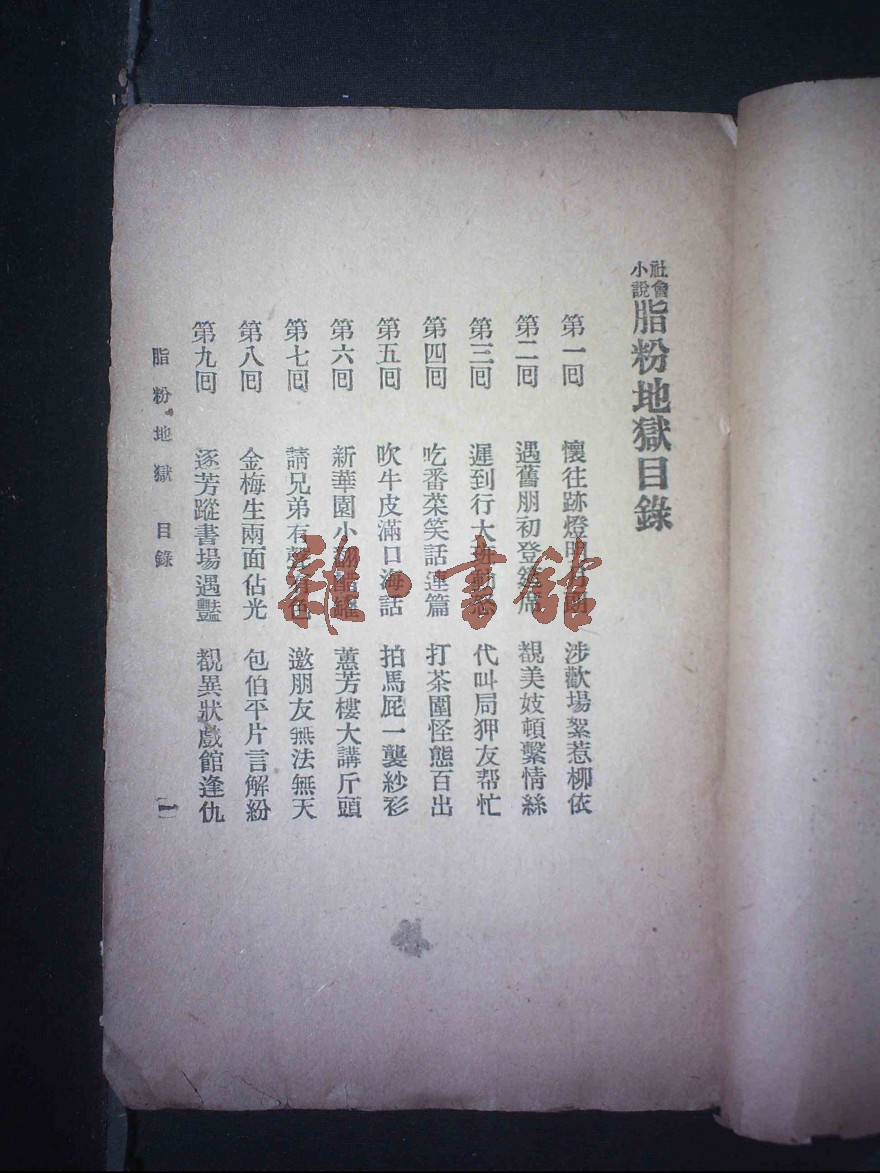 社會小說 脂粉地獄目錄
第一回 懷往跡燈明 涉歡場絮惹柳依
第二回 遇舊朋初登筵席 覩美妓頓繫情絲
第三回 遲到行大班動怒 代叫局狎友帮忙
第四回 吃番菜笑話連篇 打茶圍怪態百出
第五回 吹牛皮滿口海話 拍馬屁一襲紗衫
第六回 新華園小翻醋罐 蕙芳樓大講斤頭
第七回 請兄弟有聲有色 邀朋友無法無天
第八回 金梅生兩面佔光 包伯平片言解紛
第九回 逐芳蹤書場遇豔 覩異狀戲館逢仇
脂粉地獄 目錄 一
雜·書館